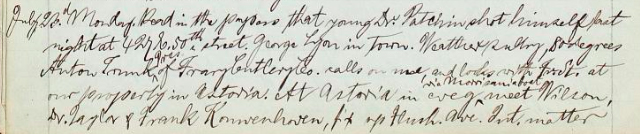 July 23d Monday. Read in the papers that young Dr. Patchin shot himself last
night at 42 E. 50th street. George Lyon in Town. Weather sultry, 80 degrees
Anton Trunk, of calls on me, and looks with Fred. at
our property in Astoria. At Astoria in eve'g, meet Wilson,
Dr. Taylor & Frank Kouwenhoven, up Flush. Ave. lot, matter